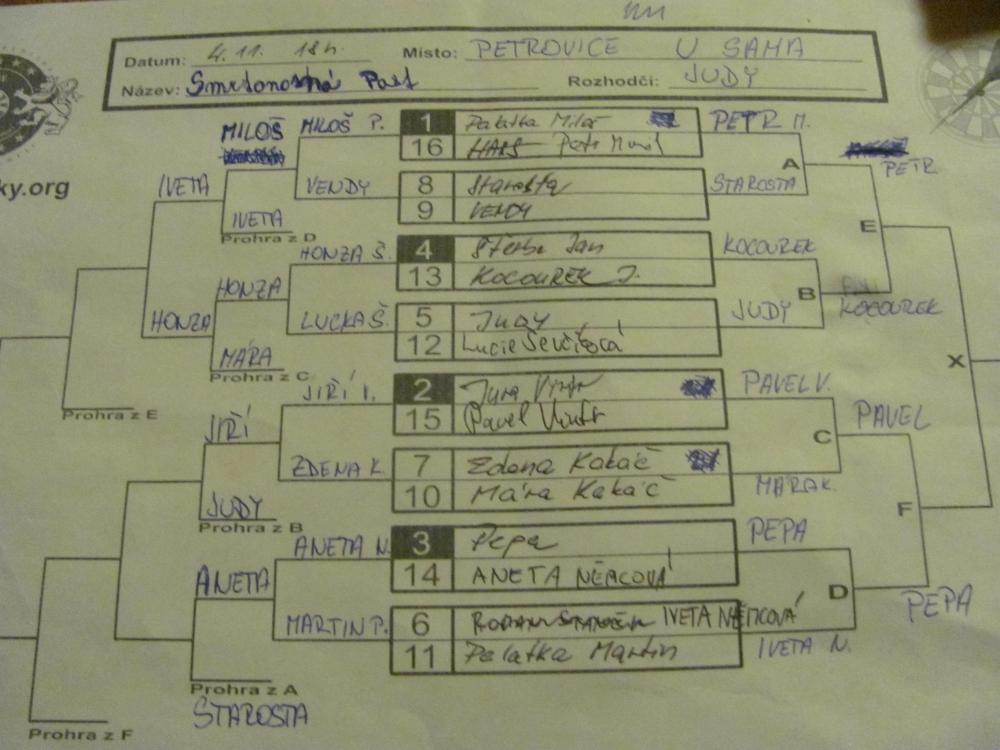 Datum: 4.11. 18h. Místo: PETROVICE U SAMA
Název: Smrtonosná Past Rozhodčí: JUDY
ky.org
MILOŠ MILOŠ P. 1 Palatka Miloš PETR M.
16 HANS PETR
A
IVETA VENDY 8 Starosta STAROSTA
9 VENDY
IVETA
Prohra z D
E
HONZA Š. 4 Štěrba Jan KOCOUREK
HONZA 13 KOCOUREK J.
B
HONZA LUCKA Š. 5 JUDY JUDY KOCOUREK
12 Lucie Ševčíková
MÁRA
Prohra z C
X
JIŘÍ 2 Jura PAVEL V.
Prohra z E
15 Pavel PAVEL
JIŘÍ
C
ZDENA K. 7 Zdena Kakáč
10 Mára Kakáč MÁRA K.
JUDY
Prohra z B
F
ANETA N. 3 Pepa PEPA
14 ANETA NĚMCOVÁ
ANETA
D
MARTIN P. 6 IVETA NĚMCOVÁ PEPA
11 Palatka Martin IVETA N.
Prohra z A
STAROSTA
Prohra z F